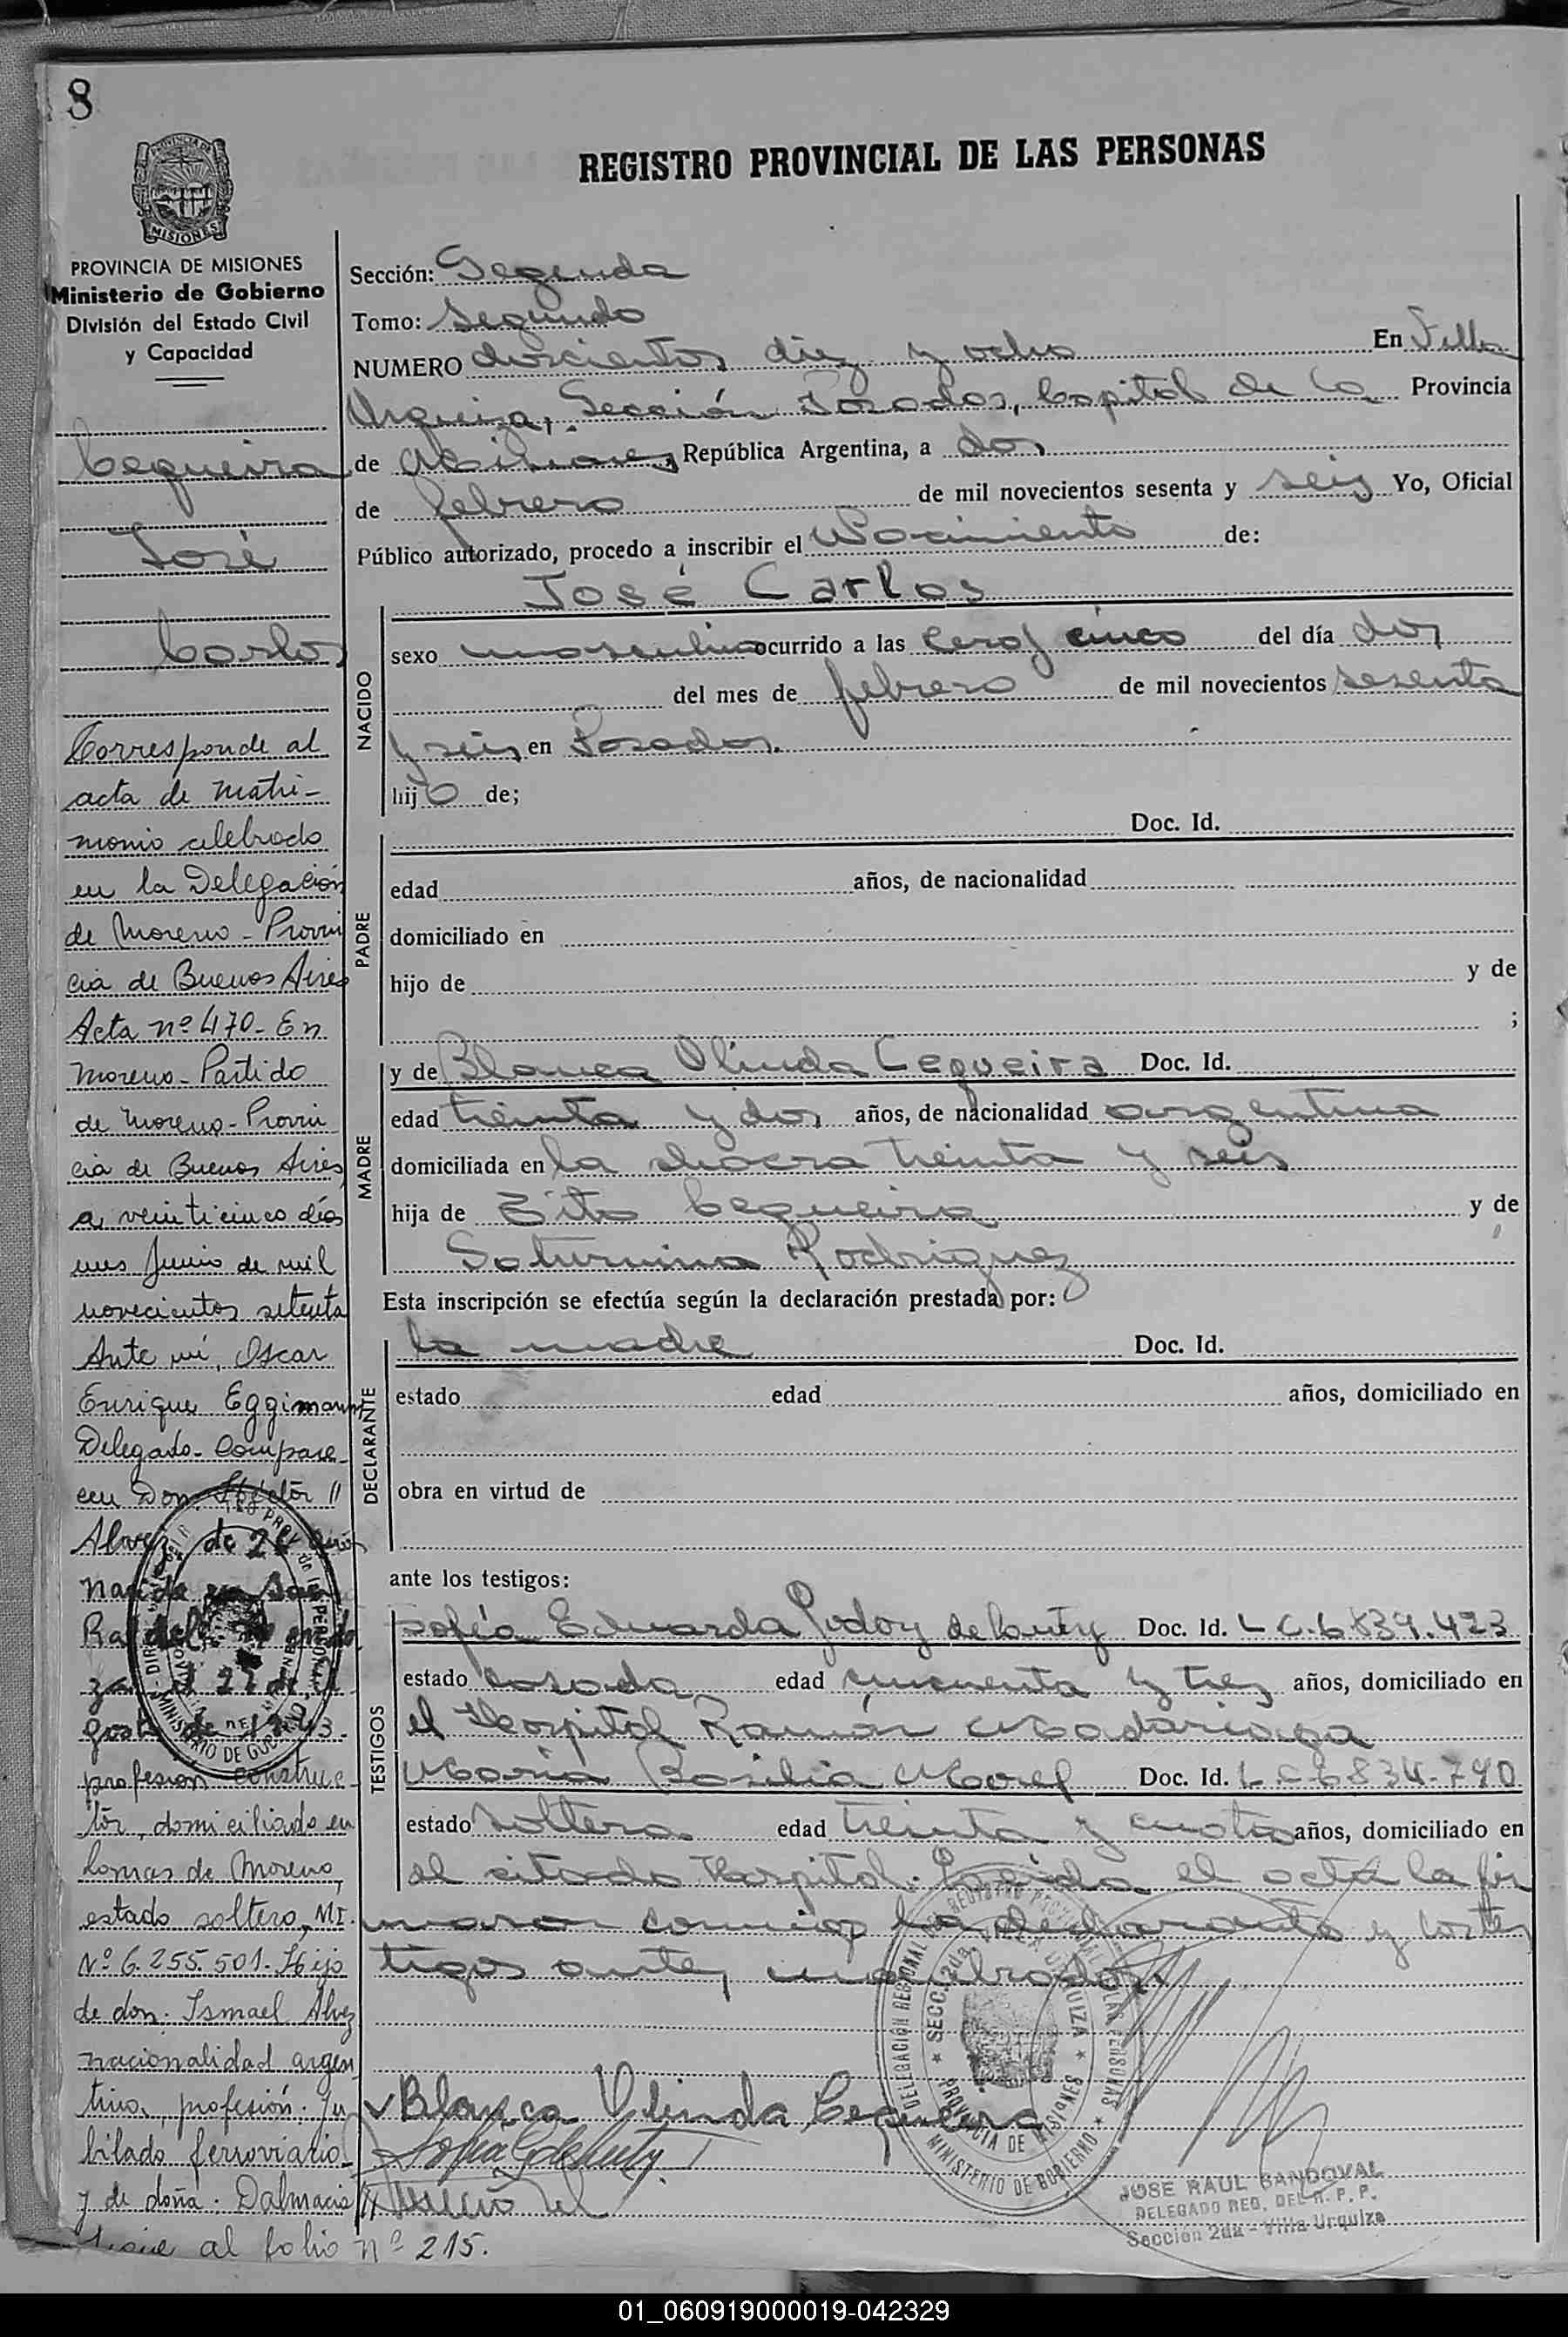 8
REGISTRO PROVINCIAL DE LAS PERSONAS
MISIONES
PROVINCIA DE MISIONES
Ministerio de Gobierno
División del Estado Civil
y Capacidad
Cequeira
José
Carlos
Corresponde al
acta de matri-
monio celebrado
en la Delegación
de Moreno - Provin
cia de Buenos Aires
Acta nº 470 - En
Moreno - Partido
de Moreno - Provin
cia de Buenos Aires
a veinticinco días
mes Junio de mil
novecientos setenta
Ante mí, Oscar
Enrique Eggimann
Delegado - Compare
cen Don Héctor //
Alvez de 26 años
nacido en San
Rafael
profesión construc-
tor, domiciliado en
Lomas de Moreno,
estado soltero, MI.
Nº 6.255.501 - Hijo
de don: Ismael Alvez
nacionalidad argen
tino, profesión: Ju
bilado ferroviario
y de doña: Dalmacia //
Sigue al folio nº 215.
Sección: Segunda
Tomo: Segundo
NUMERO doscientos diez y ocho En Villa
Urquiza, Sección Posadas, Capital de la Provincia
de Misiones, República Argentina, a dos
de febrero de mil novecientos sesenta y seis Yo, Oficial
Público autorizado, procedo a inscribir el Nacimiento de:
José Carlos
NACIDO
sexo masculino ocurrido a las cero y cinco del día dos
del mes de febrero de mil novecientos sesenta
y seis en Posadas.
hijo de;
Doc. Id.
PADRE
edad años, de nacionalidad
domiciliado en
hijo de y de
;
MADRE
y de Blanca Olinda Cequeira Doc. Id.
edad treinta y dos años, de nacionalidad argentina
domiciliada en la chacra treinta y seis
hija de Zito Cequeira y de
Saturnina Rodriguez
Esta inscripción se efectúa según la declaración prestada por:
DECLARANTE
la madre Doc. Id.
estado edad años, domiciliado en
obra en virtud de
ante los testigos:
TESTIGOS
Sofía Eduarda Godoy de Doc. Id. L C. 6 839.423
estado casada, edad cincuenta y tres años, domiciliado en
el Hospital Ramón Madariaga
María Basilia Doc. Id. L. C 6834-740
estado soltera edad treinta y cuatro años, domiciliado en
el citado Hospital. Leída el acta la fir
maron conmigo la declarante y los tes
tigos antes nombrados
DELEGACIÓN REGIONAL DEL REGISTRO PROVINCIAL DE LAS PERSONAS
SECC. 2da. VILLA URQUIZA
PROVINCIA DE MISIONES
MINISTERIO DE GOBIERNO
Blanca Olinda Cequeira
JOSE RAUL SANDOVAL
DELEGADO REG. DEL R. P. P.
Sección 2da - Villa Urquiza
01_060919000019-042329